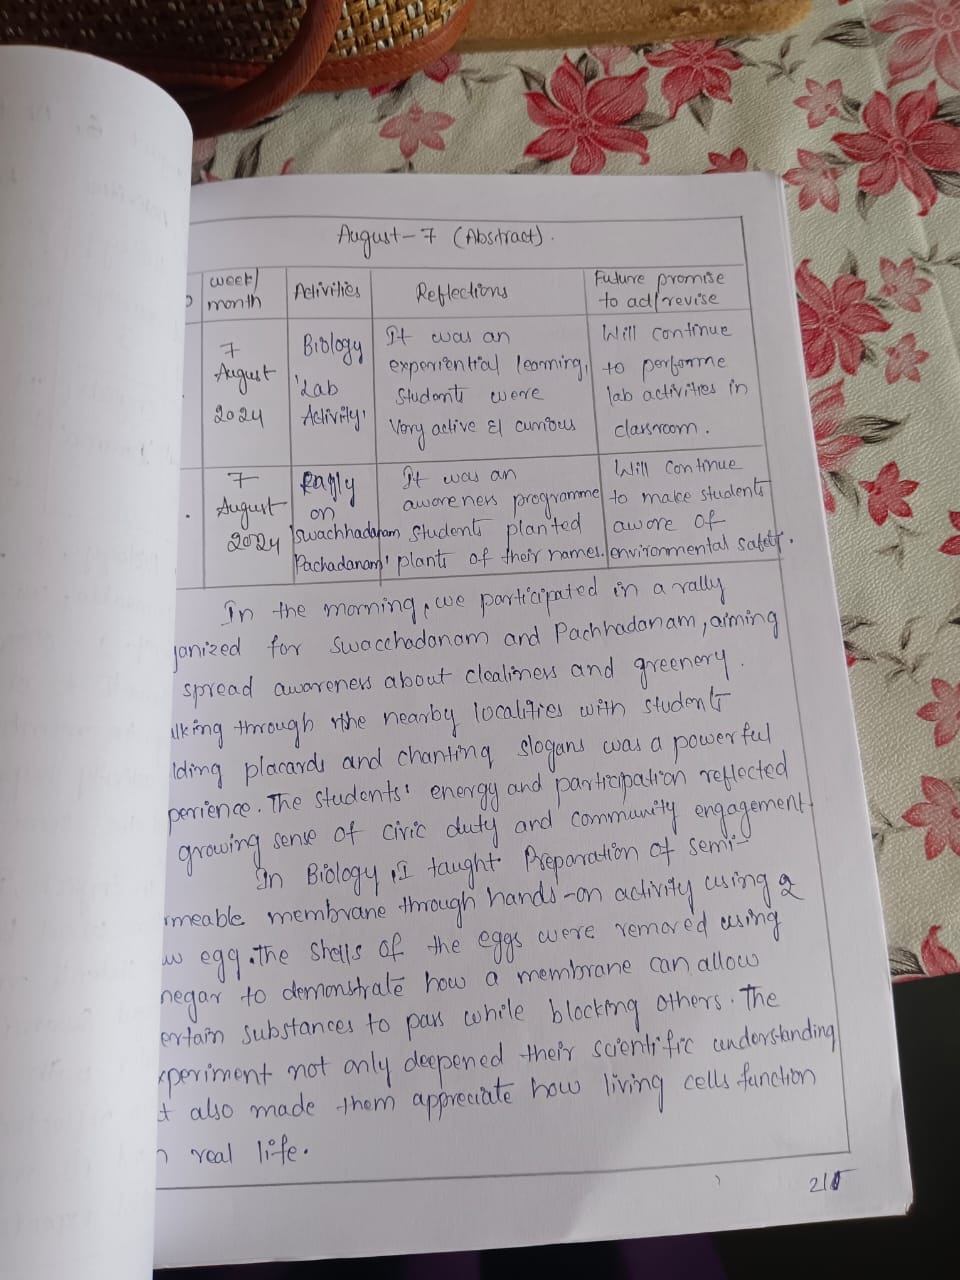 August-7 (Abstract).
week/ month
Activities
Reflections
Future promise to ad/revise
7 August 2024
Biology 'Lab Activity'
It was an experiential learning, students were Very active & curious
Will continue to performe lab activities in classroom.
7 August 2024
Rally on 'Swachhadanam Pachadanam'
It was an awareness programme students planted plants of their names.
Will continue to make students aware of environmental safety.
In the morning, we participated in a rally
ganized for Swacchadanam and Pachhadanam, aiming
spread awareness about clealiness and greenery.
lking through the nearby localities with students
lding placards and chanting slogans was a powerful
perience. The students' energy and participation reflected
growing sense of civic duty and community engagement
In Biology, I taught Preparation of semi-
rmeable membrane through hands-on activity using a
w egg. The shells of the eggs were removed using
negar to demonstrate how a membrane can allow
ertain substances to pass while blocking others. The
xperiment not only deepened their scientific understanding
t also made them appreciate how living cells function
n real life.